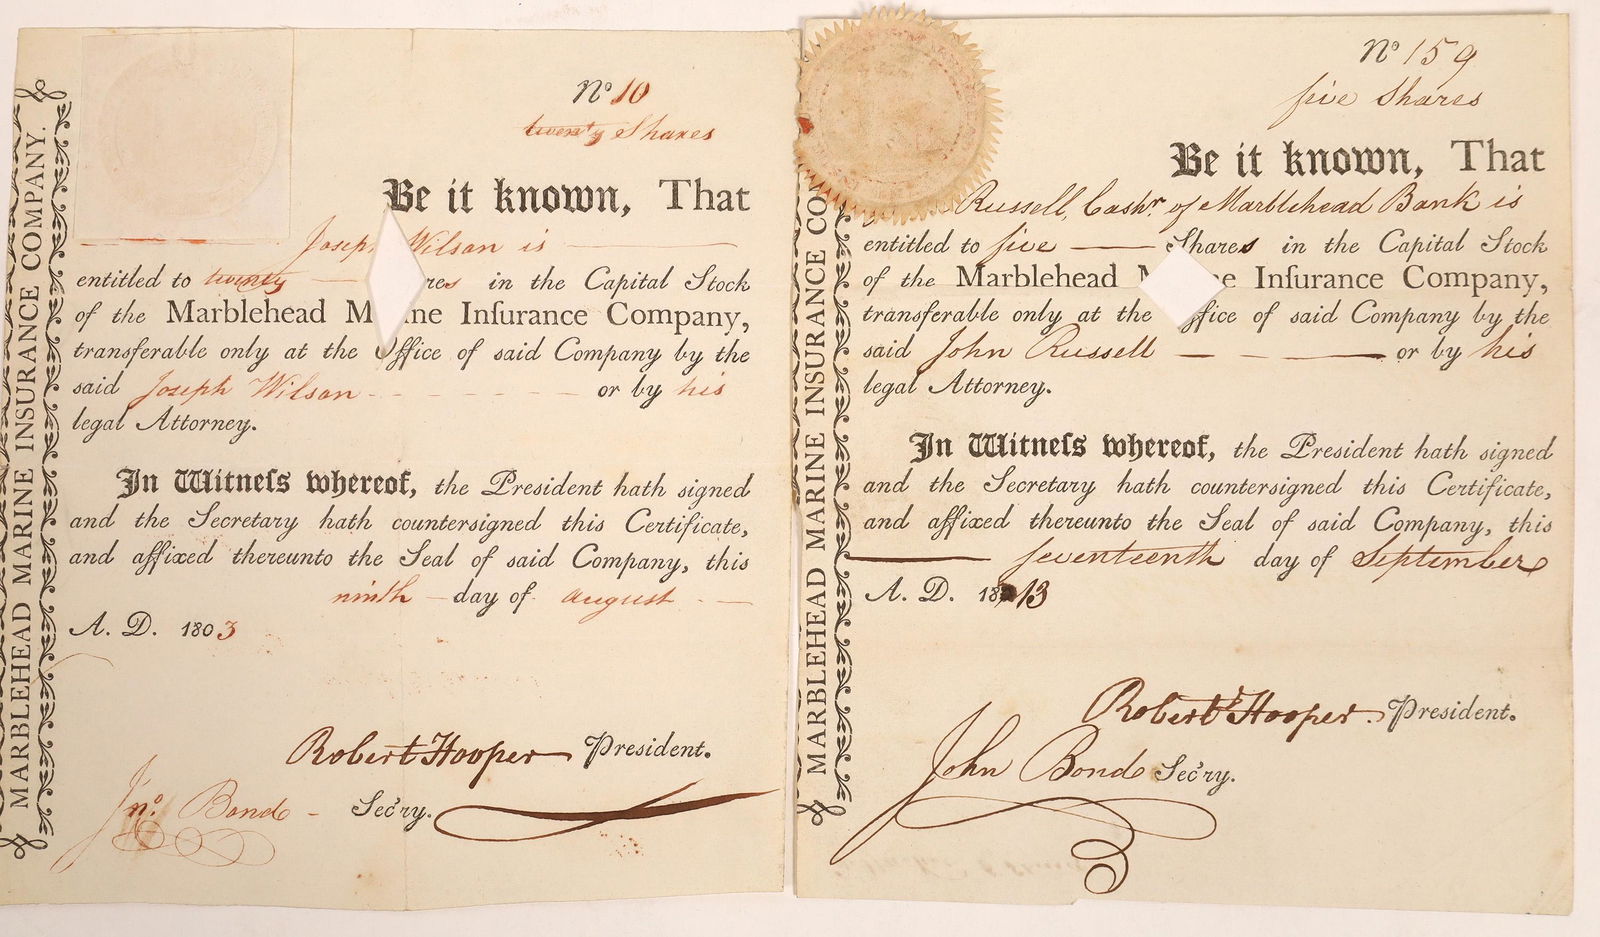 MARBLEHEAD MARINE INSURANCE COMPANY.
Nº 10
twenty Shares
Be it known, That
Joseph Wilson is
entitled to twenty res in the Capital Stock
of the Marblehead M ne Inſurance Company,
transferable only at the Office of said Company by the
said Joseph Wilson or by his
legal Attorney.
In Witneſs whereof, the President hath signed
and the Secretary hath countersigned this Certificate,
and affixed thereunto the Seal of said Company, this
ninth day of august
A. D. 1803
Robert Hooper President.
Jnº. Bond Sec'ry.
MARBLEHEAD MARINE INSURANCE CO
Nº 159
five Shares
Be it known, That
Russell, Cashr of Marblehead Bank is
entitled to five Shares in the Capital Stock
of the Marblehead M e Inſurance Company,
transferable only at the Office of said Company by the
said John Russell or by his
legal Attorney.
In Witneſs whereof, the President hath signed
and the Secretary hath countersigned this Certificate,
and affixed thereunto the Seal of said Company, this
seventeenth day of September
A. D. 1813
Robert Hooper. President.
John Bond Sec'ry.